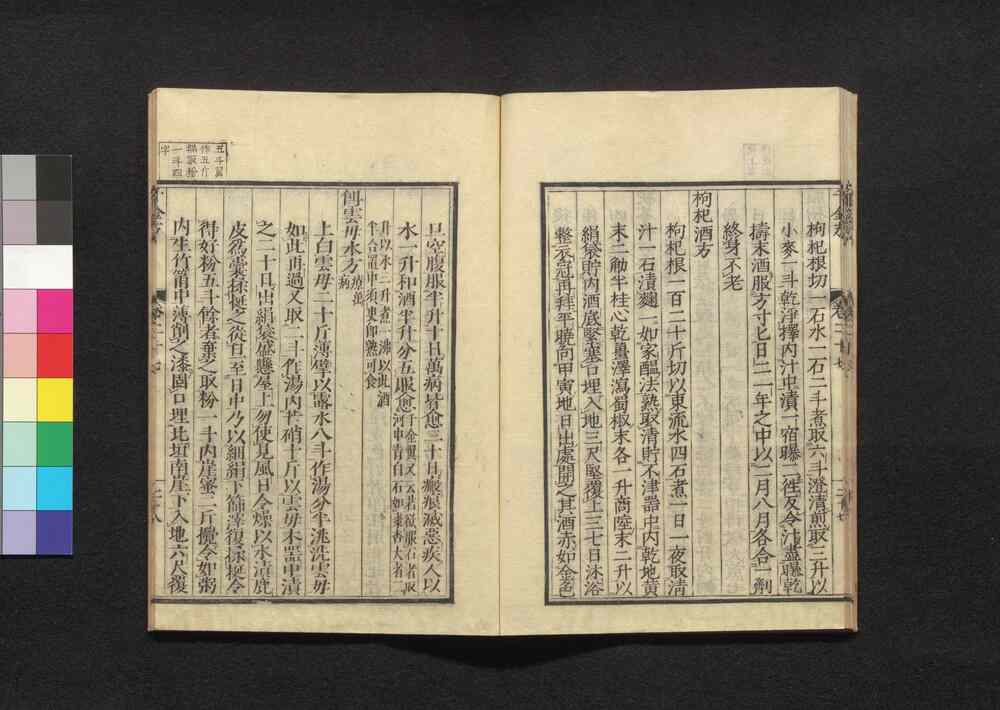 枸杞根切一石水一石二斗煮取六斗澄清煎取三升以
小麥一斗乾淨擇內汁中漬一宿曝二徃反令汁盡曝乾
擣末酒服方寸匕日二一年之中以二月八月各合一劑
終身不老
枸杞酒方
枸杞根一百二十斤切以東流水四石煮一日一夜取清
汁一石漬麴一如家醖法熟取清貯不津器中內乾地黃
末二斤半桂心乾薑澤瀉蜀椒末各一升商陸末二升以
絹袋貯內酒底緊塞口埋入地三尺堅覆上三七日沐浴
整衣冠再拜平曉向甲寅地日出處開之其酒赤如金色
旦空腹服半升十日萬病皆愈三十日瘢痕滅惡疾人以
水一升和酒半升分五服愈千金翼又云若欲服石者取
河中青白石如棗杏大者二
升以水三升煮一沸以此酒
半合置中須臾即熟可食
餌雲母水方療萬病
上白雲母二十斤薄擘以露水八斗作湯分半洮洗雲母
如此再過又取二斗作湯內芒硝十斤以雲母木器中漬
之二十日出絹袋盛懸屋上勿使見風日令燥以水漬鹿
皮爲囊揉挻之從旦至日中乃以細絹下篩滓復揉挻令
得好粉五斗餘者棄之取粉一斗內崖蜜二斤攪令如粥
內生竹筩中薄削之漆固口埋北垣南崖下入地六尺覆
五斗翼
作五斤